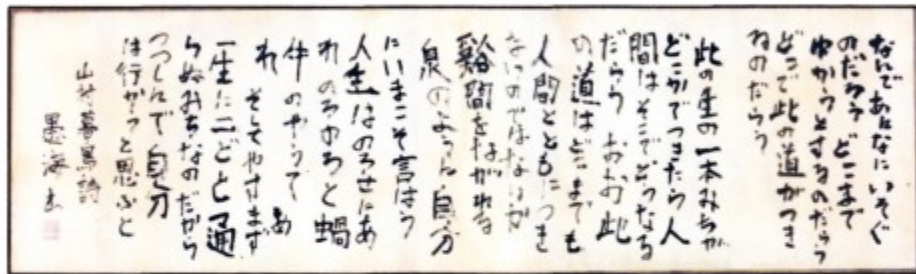 なんであんなにいそぐ
のだらう どこまで
ゆかうとするのだらう
どこで此の道がつき
るのだらう
此の生の一本みちが
どこかでつきたら人
間はそこでどうなる
だらう おお此
の道はどこまでも
人間とともにつき
ないのではないか
谿間をながれる
泉のように自分
にいまこそ言はう
人生はのろさにあ
れ のろのろと蝸
牛のやうであ
れ そしてやすまず
一生に二どと通
らぬみちなのだから
つつしんで自分
は行かうと思ふと
山村暮鳥詩
墨海書